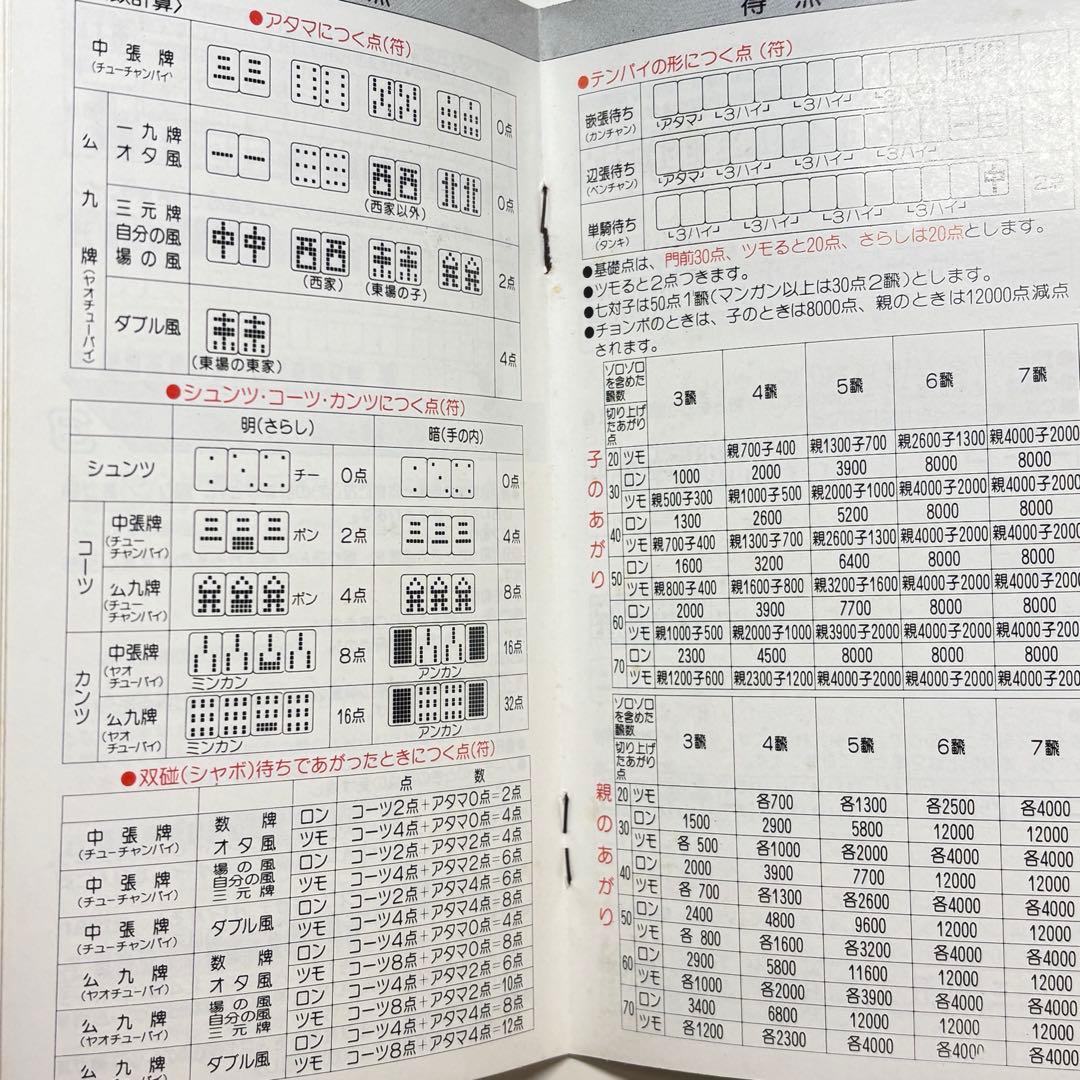 数計算〉
点
●アタマにつく点(符)
中張牌
(チューチャンパイ)
0点
公九牌(ヤオチューパイ)
一九牌
オタ風
(西家以外)
0点
三元牌
自分の風
場の風
(西家)
(東場の子)
2点
ダブル風
(東場の東家)
4点
●シュンツ・コーツ・カンツにつく点(符)
明(さらし)
暗(手の内)
シュンツ
チー
0点
0点
コーツ
中張牌
(チューチャンパイ)
ポン
2点
4点
公九牌
(チューチャンパイ)
ポン
4点
8点
カンツ
中張牌
(ヤオチューパイ)
ミンカン
8点
アンカン
16点
公九牌
(ヤオチューパイ)
ミンカン
16点
アンカン
32点
●双碰(シャボ)待ちであがったときにつく点(符)
点数
中張牌
(チューチャンパイ)
数牌
オタ風
ロン コーツ2点+アタマ0点=2点
ツモ コーツ4点+アタマ0点=4点
中張牌
(チューチャンパイ)
場の風
自分の風
三元牌
ロン コーツ2点+アタマ2点=4点
ツモ コーツ4点+アタマ2点=6点
中張牌
(チューチャンパイ)
ダブル風
ロン コーツ2点+アタマ4点=6点
ツモ コーツ4点+アタマ4点=8点
公九牌
(ヤオチューパイ)
数牌
オタ風
ロン コーツ4点+アタマ0点=4点
ツモ コーツ8点+アタマ0点=8点
公九牌
(ヤオチューパイ)
場の風
自分の風
三元牌
ロン コーツ4点+アタマ2点=6点
ツモ コーツ8点+アタマ2点=10点
公九牌
ダブル風
ロン コーツ4点+アタマ4点=8点
ツモ コーツ8点+アタマ4点=12点
得点
●テンパイの形につく点(符)
嵌張待ち
(カンチャン)
アタマ 3ハイ 3ハイ 3ハイ
辺張待ち
(ペンチャン)
アタマ 3ハイ 3ハイ 3ハイ
単騎待ち
(タンキ)
3ハイ 3ハイ 3ハイ 3ハイ
2点
●基礎点は、門前30点、ツモると20点、さらしは20点とします。
●ツモると2点つきます。
●七対子は50点1飜(マンガン以上は30点2飜)とします。
●チョンボのときは、子のときは8000点、親のときは12000点減点
されます。
子のあがり
ゾロゾロを含めた飜数
切り上げたあがり点
3飜 4飜 5飜 6飜 7飜
20 ツモ 親700子400 親1300子700 親2600子1300 親4000子2000
30 ロン 1000 2000 3900 8000 8000
ツモ 親500子300 親1000子500 親2000子1000 親4000子2000 親4000子2000
40 ロン 1300 2600 5200 8000 8000
ツモ 親700子400 親1300子700 親2600子1300 親4000子2000 親4000子2000
50 ロン 1600 3200 6400 8000 8000
ツモ 親800子400 親1600子800 親3200子1600 親4000子2000 親4000子2000
60 ロン 2000 3900 7700 8000 8000
ツモ 親1000子500 親2000子1000 親3900子2000 親4000子2000 親4000子200
70 ロン 2300 4500 8000 8000 8000
ツモ 親1200子600 親2300子1200 親4000子2000 親4000子2000 親4000子200
親のあがり
ゾロゾロを含めた飜数
切り上げたあがり点
3飜 4飜 5飜 6飜 7飜
20 ツモ 各700 各1300 各2500 各4000
30 ロン 1500 2900 5800 12000 12000
ツモ 各500 各1000 各2000 各4000 各4000
40 ロン 2000 3900 7700 12000 12000
ツモ 各700 各1300 各2600 各4000 各4000
50 ロン 2400 4800 9600 12000 12000
ツモ 各800 各1600 各3200 各4000 各4000
60 ロン 2900 5800 11600 12000 12000
ツモ 各1000 各2000 各3900 各4000 各4000
70 ロン 3400 6800 12000 12000 12000
ツモ 各1200 各2300 各4000 各4000 各4000